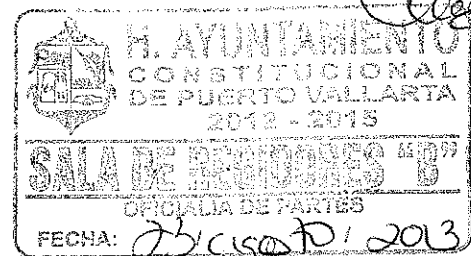 H. AYUNTAMIENTO
CONSTITUCIONAL
DE PUERTO VALLARTA
2012 - 2015
SALA DE REGIDORES "B"
OFICIALIA DE PARTES
FECHA: / 2013